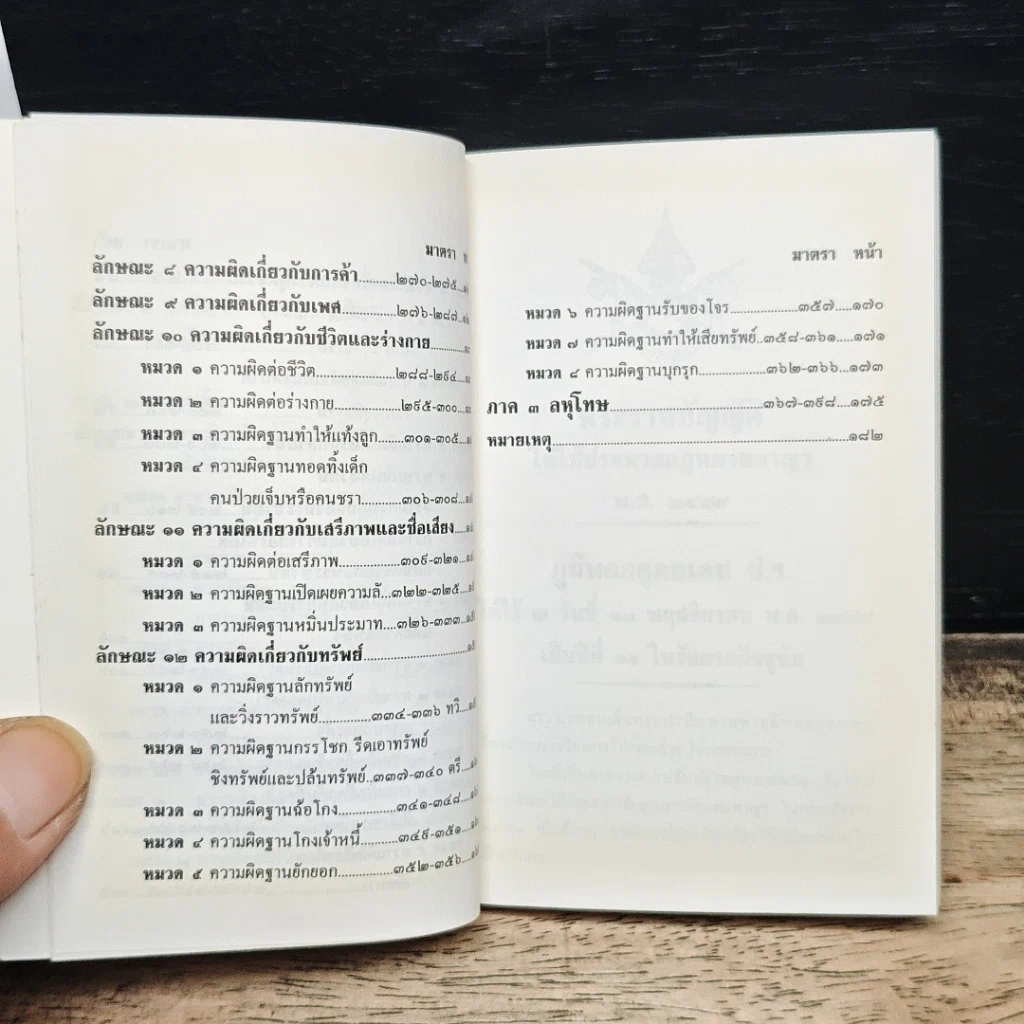 มาตรา
ลักษณะ ๘ ความผิดเกี่ยวกับการค้า...........๒๗๐-๒๗๕
ลักษณะ ๙ ความผิดเกี่ยวกับเพศ................๒๗๖-๒๘๗
ลักษณะ ๑๐ ความผิดเกี่ยวกับชีวิตและร่างกาย
หมวด ๑ ความผิดต่อชีวิต....................๒๘๘-๒๙๔
หมวด ๒ ความผิดต่อร่างกาย..............๒๙๕-๓๐๐
หมวด ๓ ความผิดฐานทำให้แท้งลูก....๓๐๑-๓๐๕
หมวด ๔ ความผิดฐานทอดทิ้งเด็ก
คนป่วยเจ็บหรือคนชรา...........๓๐๖-๓๐๘
ลักษณะ ๑๑ ความผิดเกี่ยวกับเสรีภาพและชื่อเสียง
หมวด ๑ ความผิดต่อเสรีภาพ..............๓๐๙-๓๒๑
หมวด ๒ ความผิดฐานเปิดเผยความลับ...๓๒๒-๓๒๕
หมวด ๓ ความผิดฐานหมิ่นประมาท....๓๒๖-๓๓๓
ลักษณะ ๑๒ ความผิดเกี่ยวกับทรัพย์
หมวด ๑ ความผิดฐานลักทรัพย์
และวิ่งราวทรัพย์.............๓๓๔-๓๓๖ ทวิ
หมวด ๒ ความผิดฐานกรรโชก รีดเอาทรัพย์
ชิงทรัพย์และปล้นทรัพย์..๓๓๗-๓๔๐ ตรี
หมวด ๓ ความผิดฐานฉ้อโกง..............๓๔๑-๓๔๘
หมวด ๔ ความผิดฐานโกงเจ้าหนี้.........๓๔๙-๓๕๑
หมวด ๕ ความผิดฐานยักยอก...............๓๕๒-๓๕๖
มาตรา หน้า
หมวด ๖ ความผิดฐานรับของโจร................๓๕๗....๑๗๐
หมวด ๗ ความผิดฐานทำให้เสียทรัพย์..๓๕๘-๓๖๑....๑๗๑
หมวด ๘ ความผิดฐานบุกรุก................๓๖๒-๓๖๖....๑๗๓
ภาค ๓ ลหุโทษ....................................๓๖๗-๓๙๘....๑๗๕
หมายเหตุ........................................................................๑๘๒